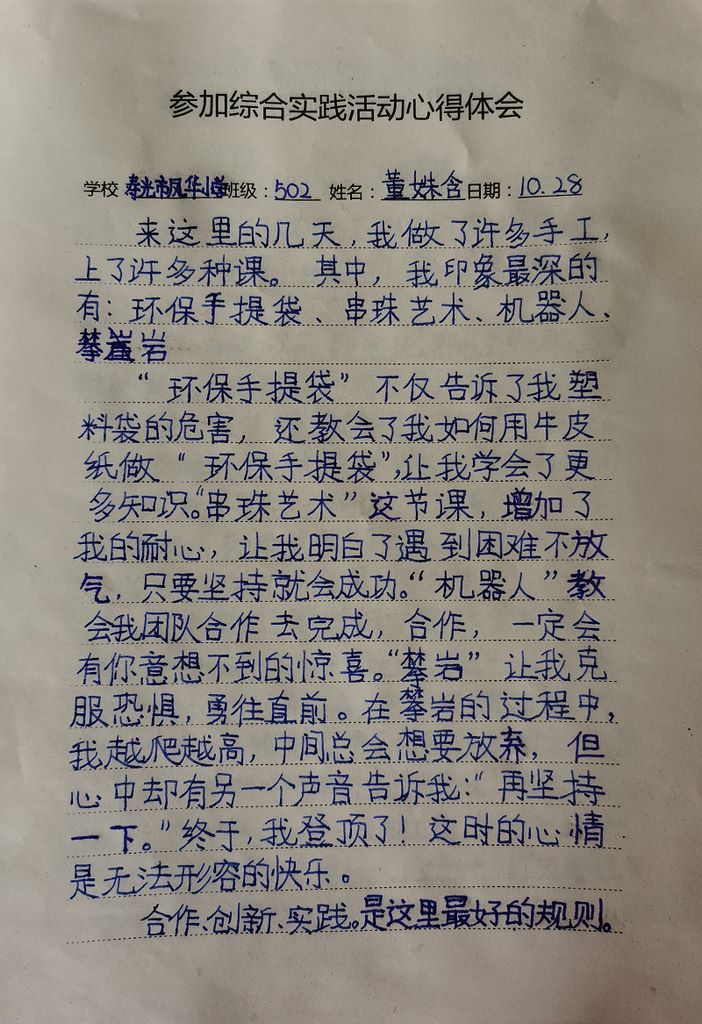 参加综合实践活动心得体会
学校 寿光市凤华小学 班级：502 姓名：董姝含 日期：10.28
来这里的几天，我做了许多手工，
上了许多种课。其中，我印象最深的
有：环保手提袋、串珠艺术、机器人、
攀岩
“环保手提袋”不仅告诉了我塑
料袋的危害，还教会了我如何用牛皮
纸做“环保手提袋”，让我学会了更
多知识。“串珠艺术”这节课，增加了
我的耐心，让我明白了遇到困难不放
气，只要坚持就会成功。“机器人”教
会我团队合作去完成，合作，一定会
有你意想不到的惊喜。“攀岩”让我克
服恐惧，勇往直前。在攀岩的过程中，
我越爬越高，中间总会想要放弃，但
心中却有另一个声音告诉我：“再坚持
一下。”终于，我登顶了！这时的心情
是无法形容的快乐。
合作、创新、实践。是这里最好的规则。